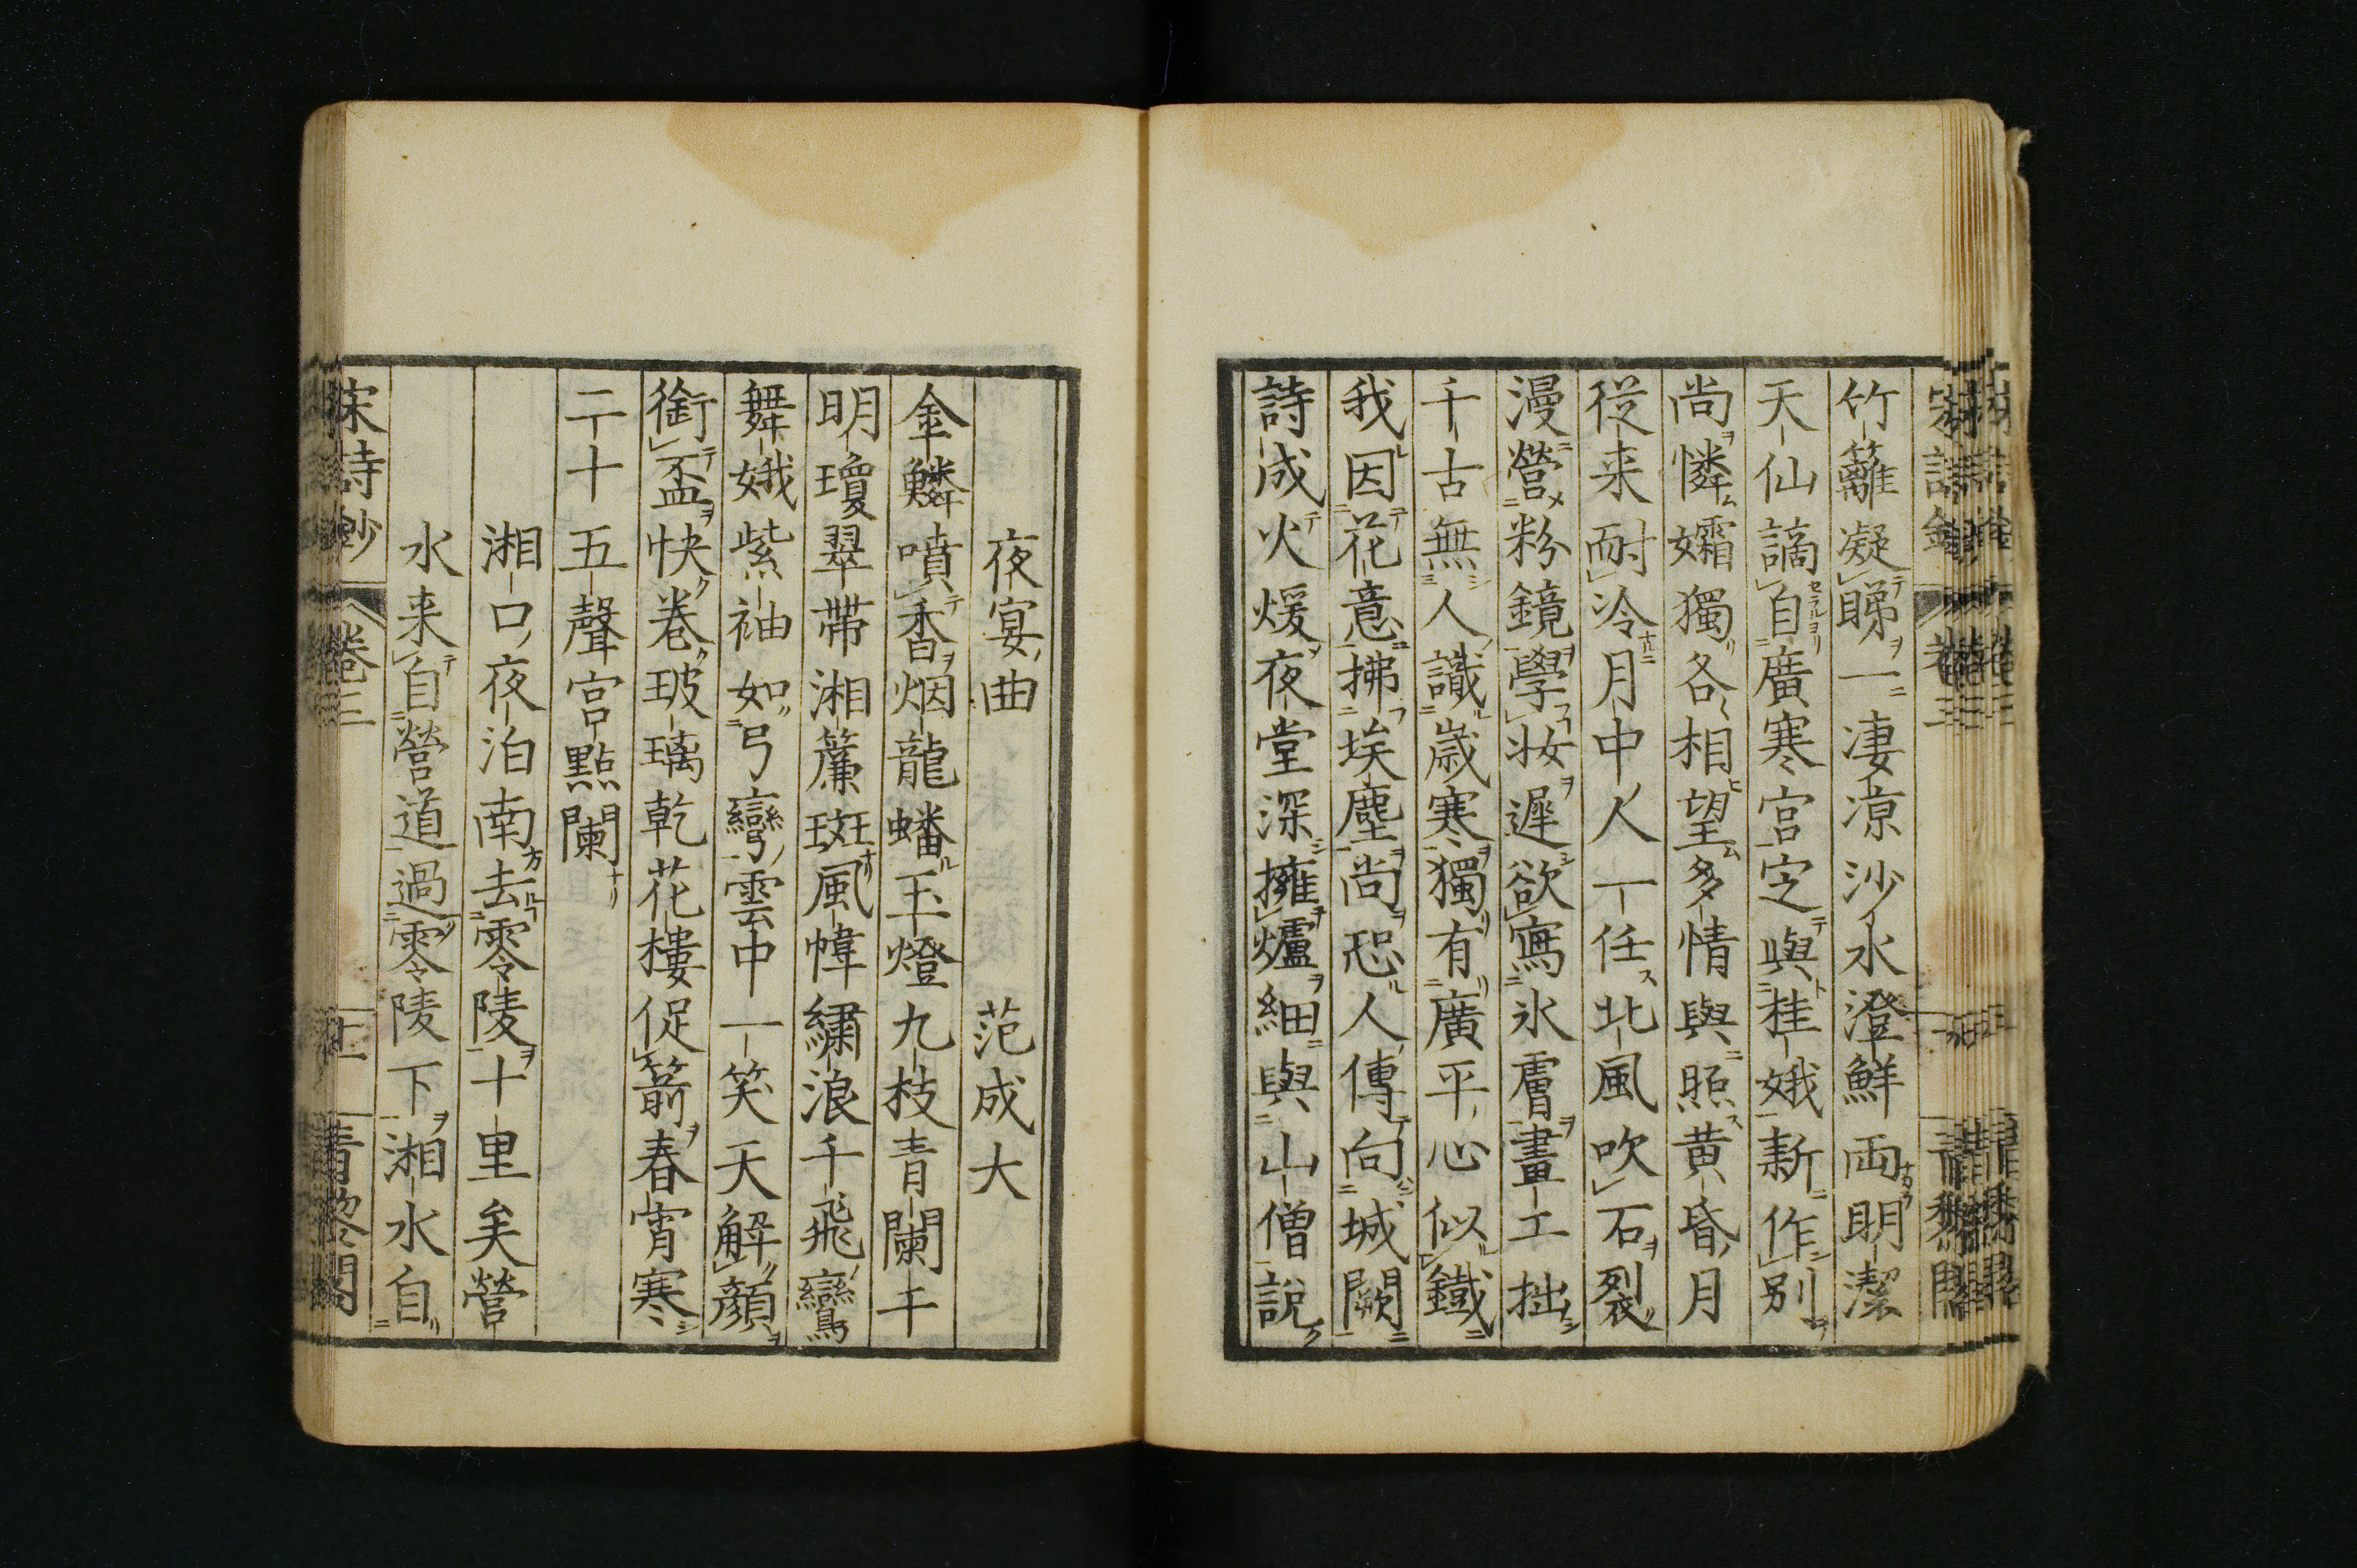 竹籬凝睇一凄凉沙水澄鮮両明潔
天仙謫自廣寒宮定與桂娥新作別
尚憐孀獨各相望多情與照黄昏月
從来耐冷月中人一任北風吹石裂
漫營粉鏡學妝遲欲寫氷膚畫工拙
千古無人識歳寒獨有廣平心似鐵
我因花意拂埃塵尚恐人傳向城闕
詩成火煖夜堂深擁爐細與山僧説
夜宴曲 范成大
金鱗噴香烟龍蟠玉燈九枝青闌干
明瓊翠帶湘簾斑風幃繡浪千飛鸞
舞娥紫袖如弓彎雲中一笑天解顔
銜盃快卷玻璃乾花樓促箭春宵寒
二十五聲宮點闌
湘口夜泊南去零陵十里矣營
水来自營道過零陵下湘水自
宋詩鈔 卷三